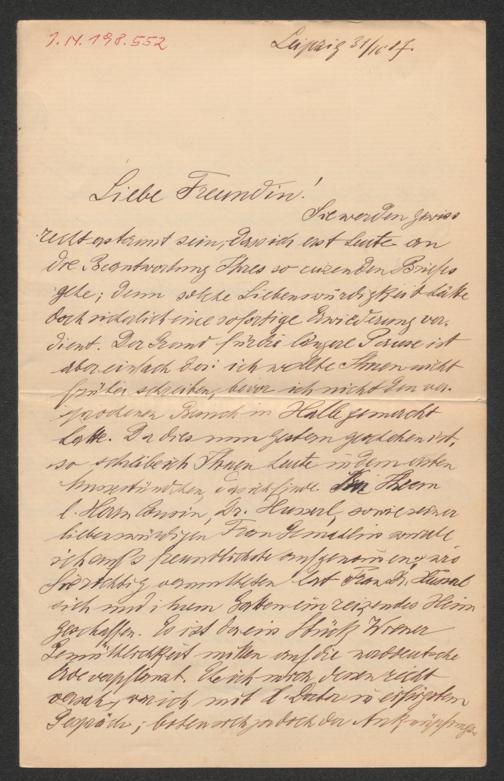 I.N.198.552
Leipzig 31/10 87.
Liebe Freundin!
Sie werden gewiss
recht erstaunt sein, dass ich erst heute an
die Beantwortung Ihres so reizenden Briefes
gehe; denn solche Liebenswürdigkeit hätte
doch sicherlich eine sofortige Erwiederung ver-
dient. Der Grund für die längere Pause ist
aber einfach der: ich wollte Ihnen nicht
früher schreiben, bevor ich nicht den ver-
sprochenen Besuch in Halle gemacht
hatte. Da dies nun gestern geschehen ist,
so schreibe ich Ihnen heute in dem ersten
das ich finde. Von Ihrem
l. Herrn Cousin, Dr. Husserl, sowie seiner
liebenswürdigen Frau Gemahlin wurde
ich aufs freundlichste aufgenommen;
hat Frau Dr. Husserl
sich und ihrem Gatten ein reizendes Heim
geschaffen. Es ist da ein Stück Wiener
Gemüthlichkeit mitten auf die norddeutsche
Erde verpflanzt. Ehe ich mich dessen recht
versah, war ich mit l. Doctor in eifrigstem
Gespräch; boten sich ja doch der